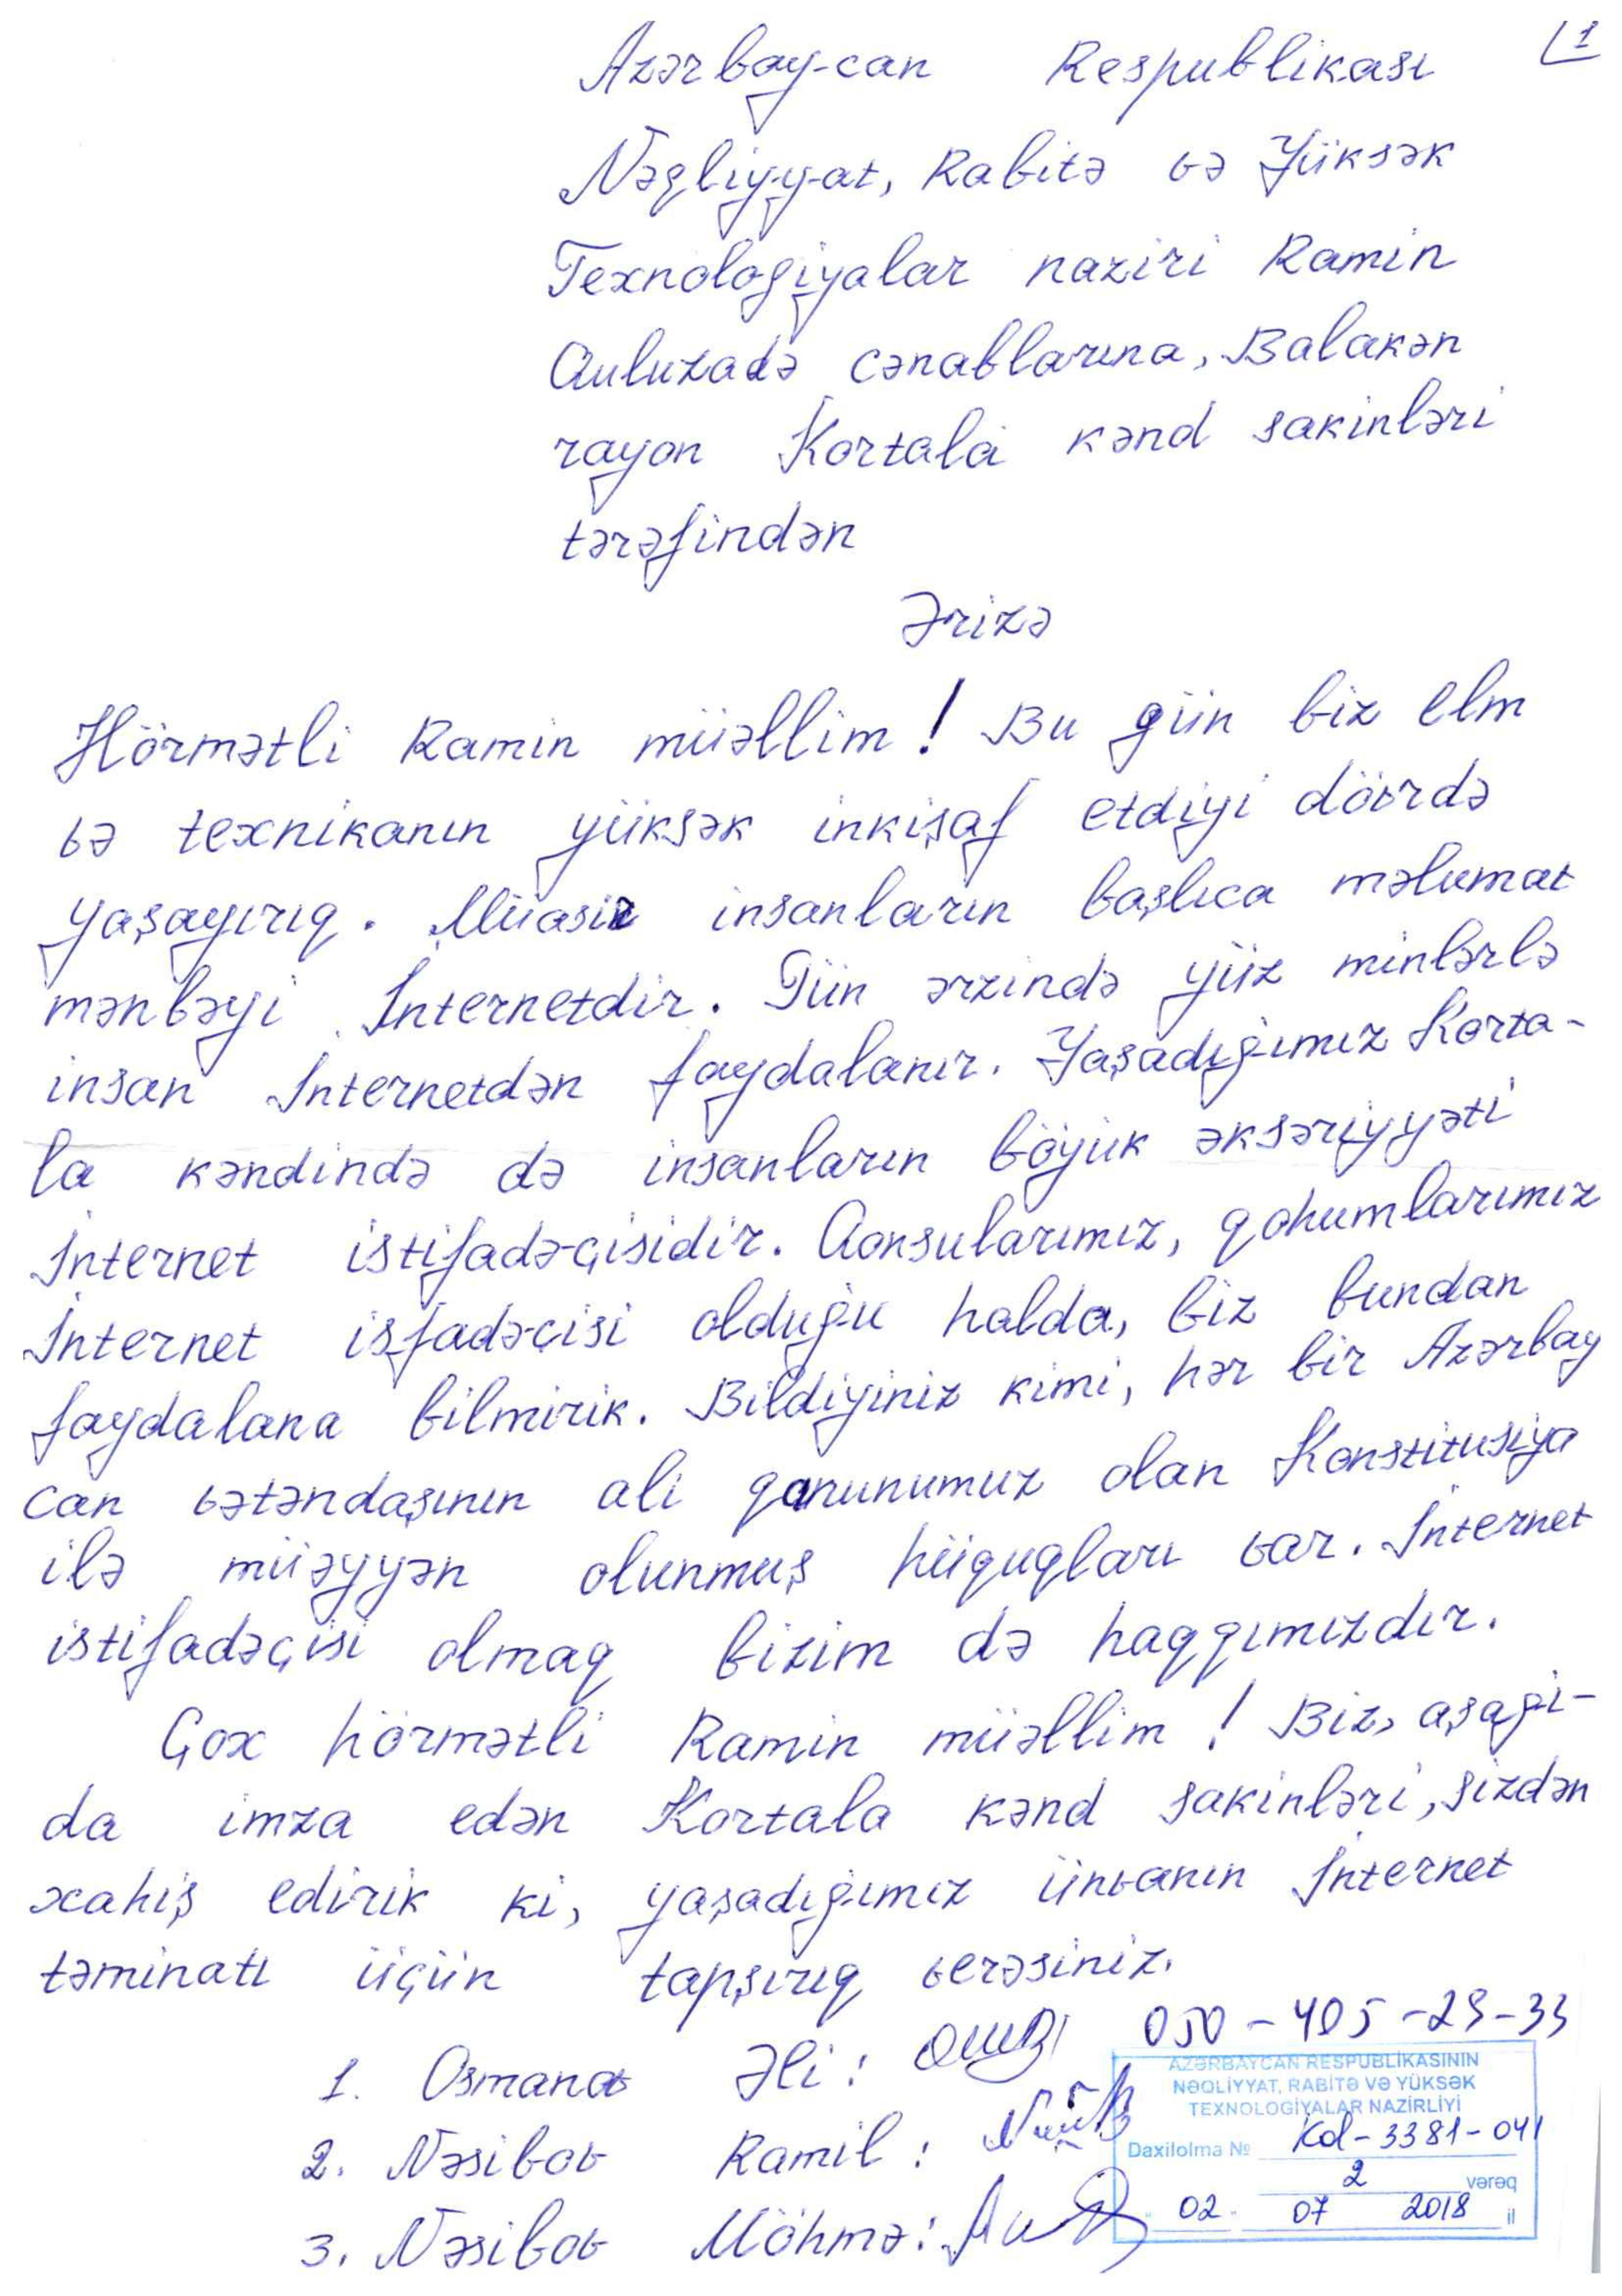 1
Azərbaycan Respublikası
Nəqliyyat, Rabitə və Yüksək
Texnologiyalar naziri Ramin
Quluzadə cənablarına, Balakən
rayon Kortala kənd sakinləri
tərəfindən
Ərizə
Hörmətli Ramin müəllim! Bu gün biz elm
və texnikanın yüksək inkişaf etdiyi dövrdə
yaşayırıq. Müasir insanların başlıca məlumat
mənbəyi İnternetdir. Gün ərzində yüz minlərlə
insan İnternetdən faydalanır. Yaşadığımız Korta-
la kəndində də insanların böyük əksəriyyəti
İnternet istifadəçisidir. Qonşularımız, qohumlarımız
İnternet isfadəçisi olduğu halda, biz bundan
faydalana bilmirik. Bildiyiniz kimi, hər bir Azərbay
can vətəndaşının ali qanunumuz olan Konstitusiya
ilə müəyyən olunmuş hüquqları var. İnternet
istifadəçisi olmaq bizim də haqqımızdır.
Çox hörmətli Ramin müəllim! Biz, aşaği-
da imza edən Kortala kənd sakinləri, sizdən
xahiş edirik ki, yaşadığımız ünvanın İnternet
təminatı üçün tapşırıq verəsiniz.
050-405-23-33
1. Osmanov Əli:
2. Nəsibov Ramil:
3. Nəsibov Möhmə:
AZƏRBAYCAN RESPUBLİKASININ
NƏQLİYYAT, RABİTƏ VƏ YÜKSƏK
TEXNOLOGİYALAR NAZİRLİYİ
Daxilolma № Kol-3381-041
2 vərəq
02 07 2018 il